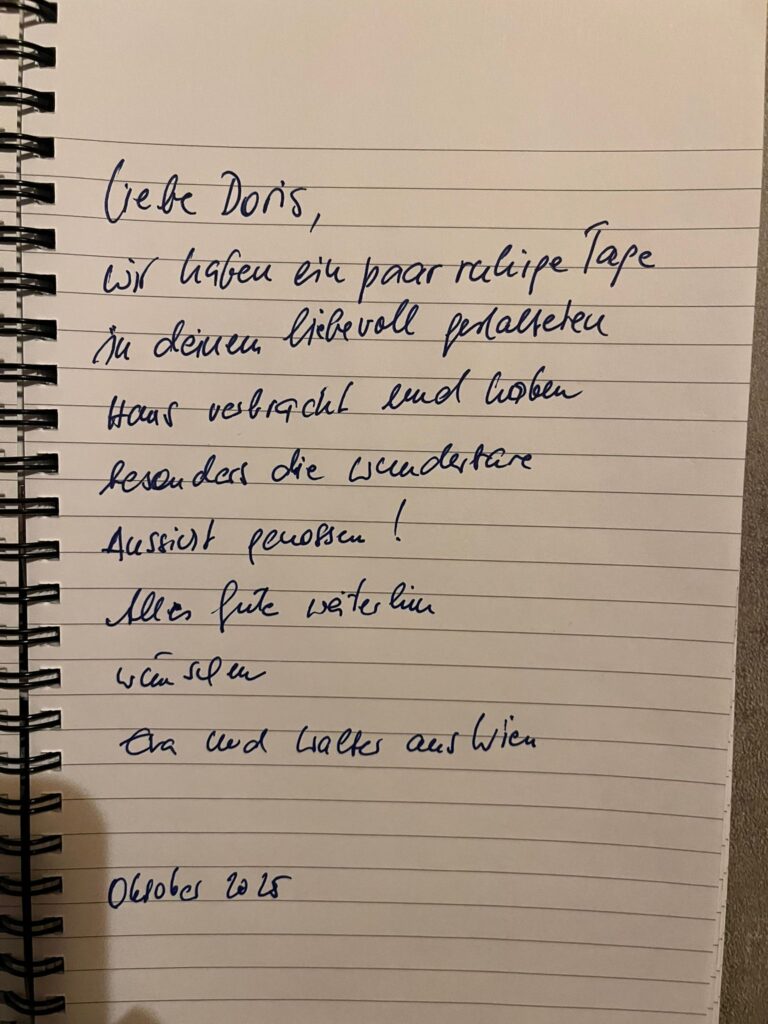 Liebe Doris,
wir haben ein paar ruhige Tage
in deinem liebevoll gestalteten
Haus verbracht und haben
besonders die wunderbare
Aussicht genossen!
Alles Gute weiterhin
wünschen
Eva und Walter aus Wien
Oktober 2025